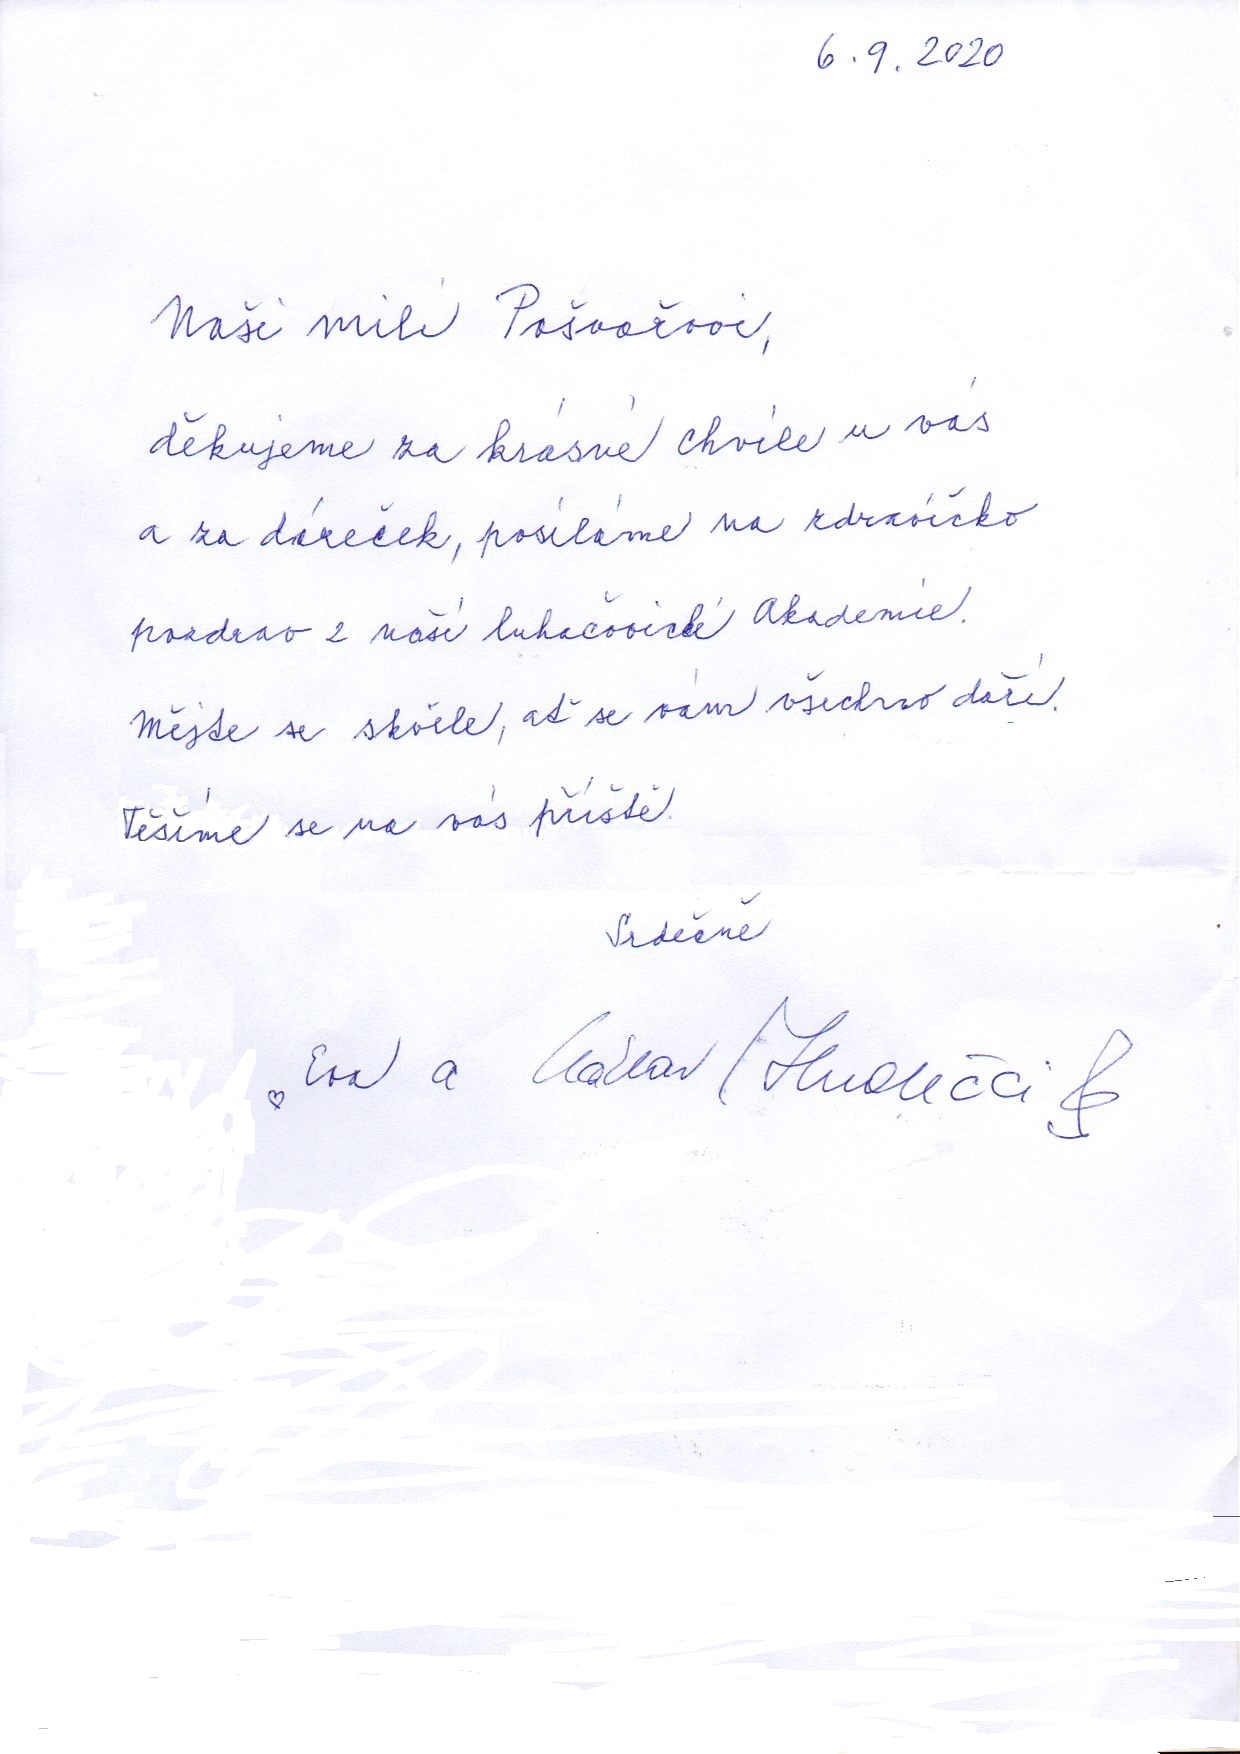 6.9.2020
Naši milí Pošvářovi,
děkujeme za krásné chvíle u vás
a za dáreček, posíláme na zdravíčko
pozdrav z naší luhačovické Akademie.
Mějte se skvěle, ať se vám všechno daří.
Těšíme se na vás příště.
Srdečně
Eva a Václav Hudečci